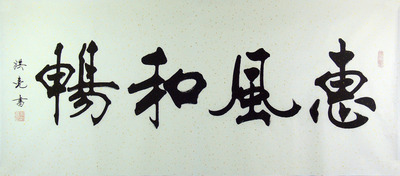 惠風和暢
洪亮書